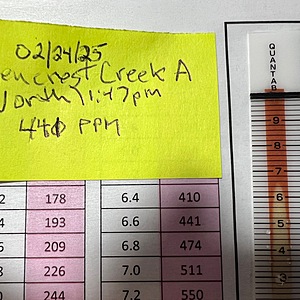 02/24/25
encrest Creek A
North 1:47pm
440 PPM
QUANTAB
9
8
7
6
5
4
3
2 178 6.4 410
4 193 6.6 441
6 209 6.8 474
8 226 7.0 511
0 244 7.2 550